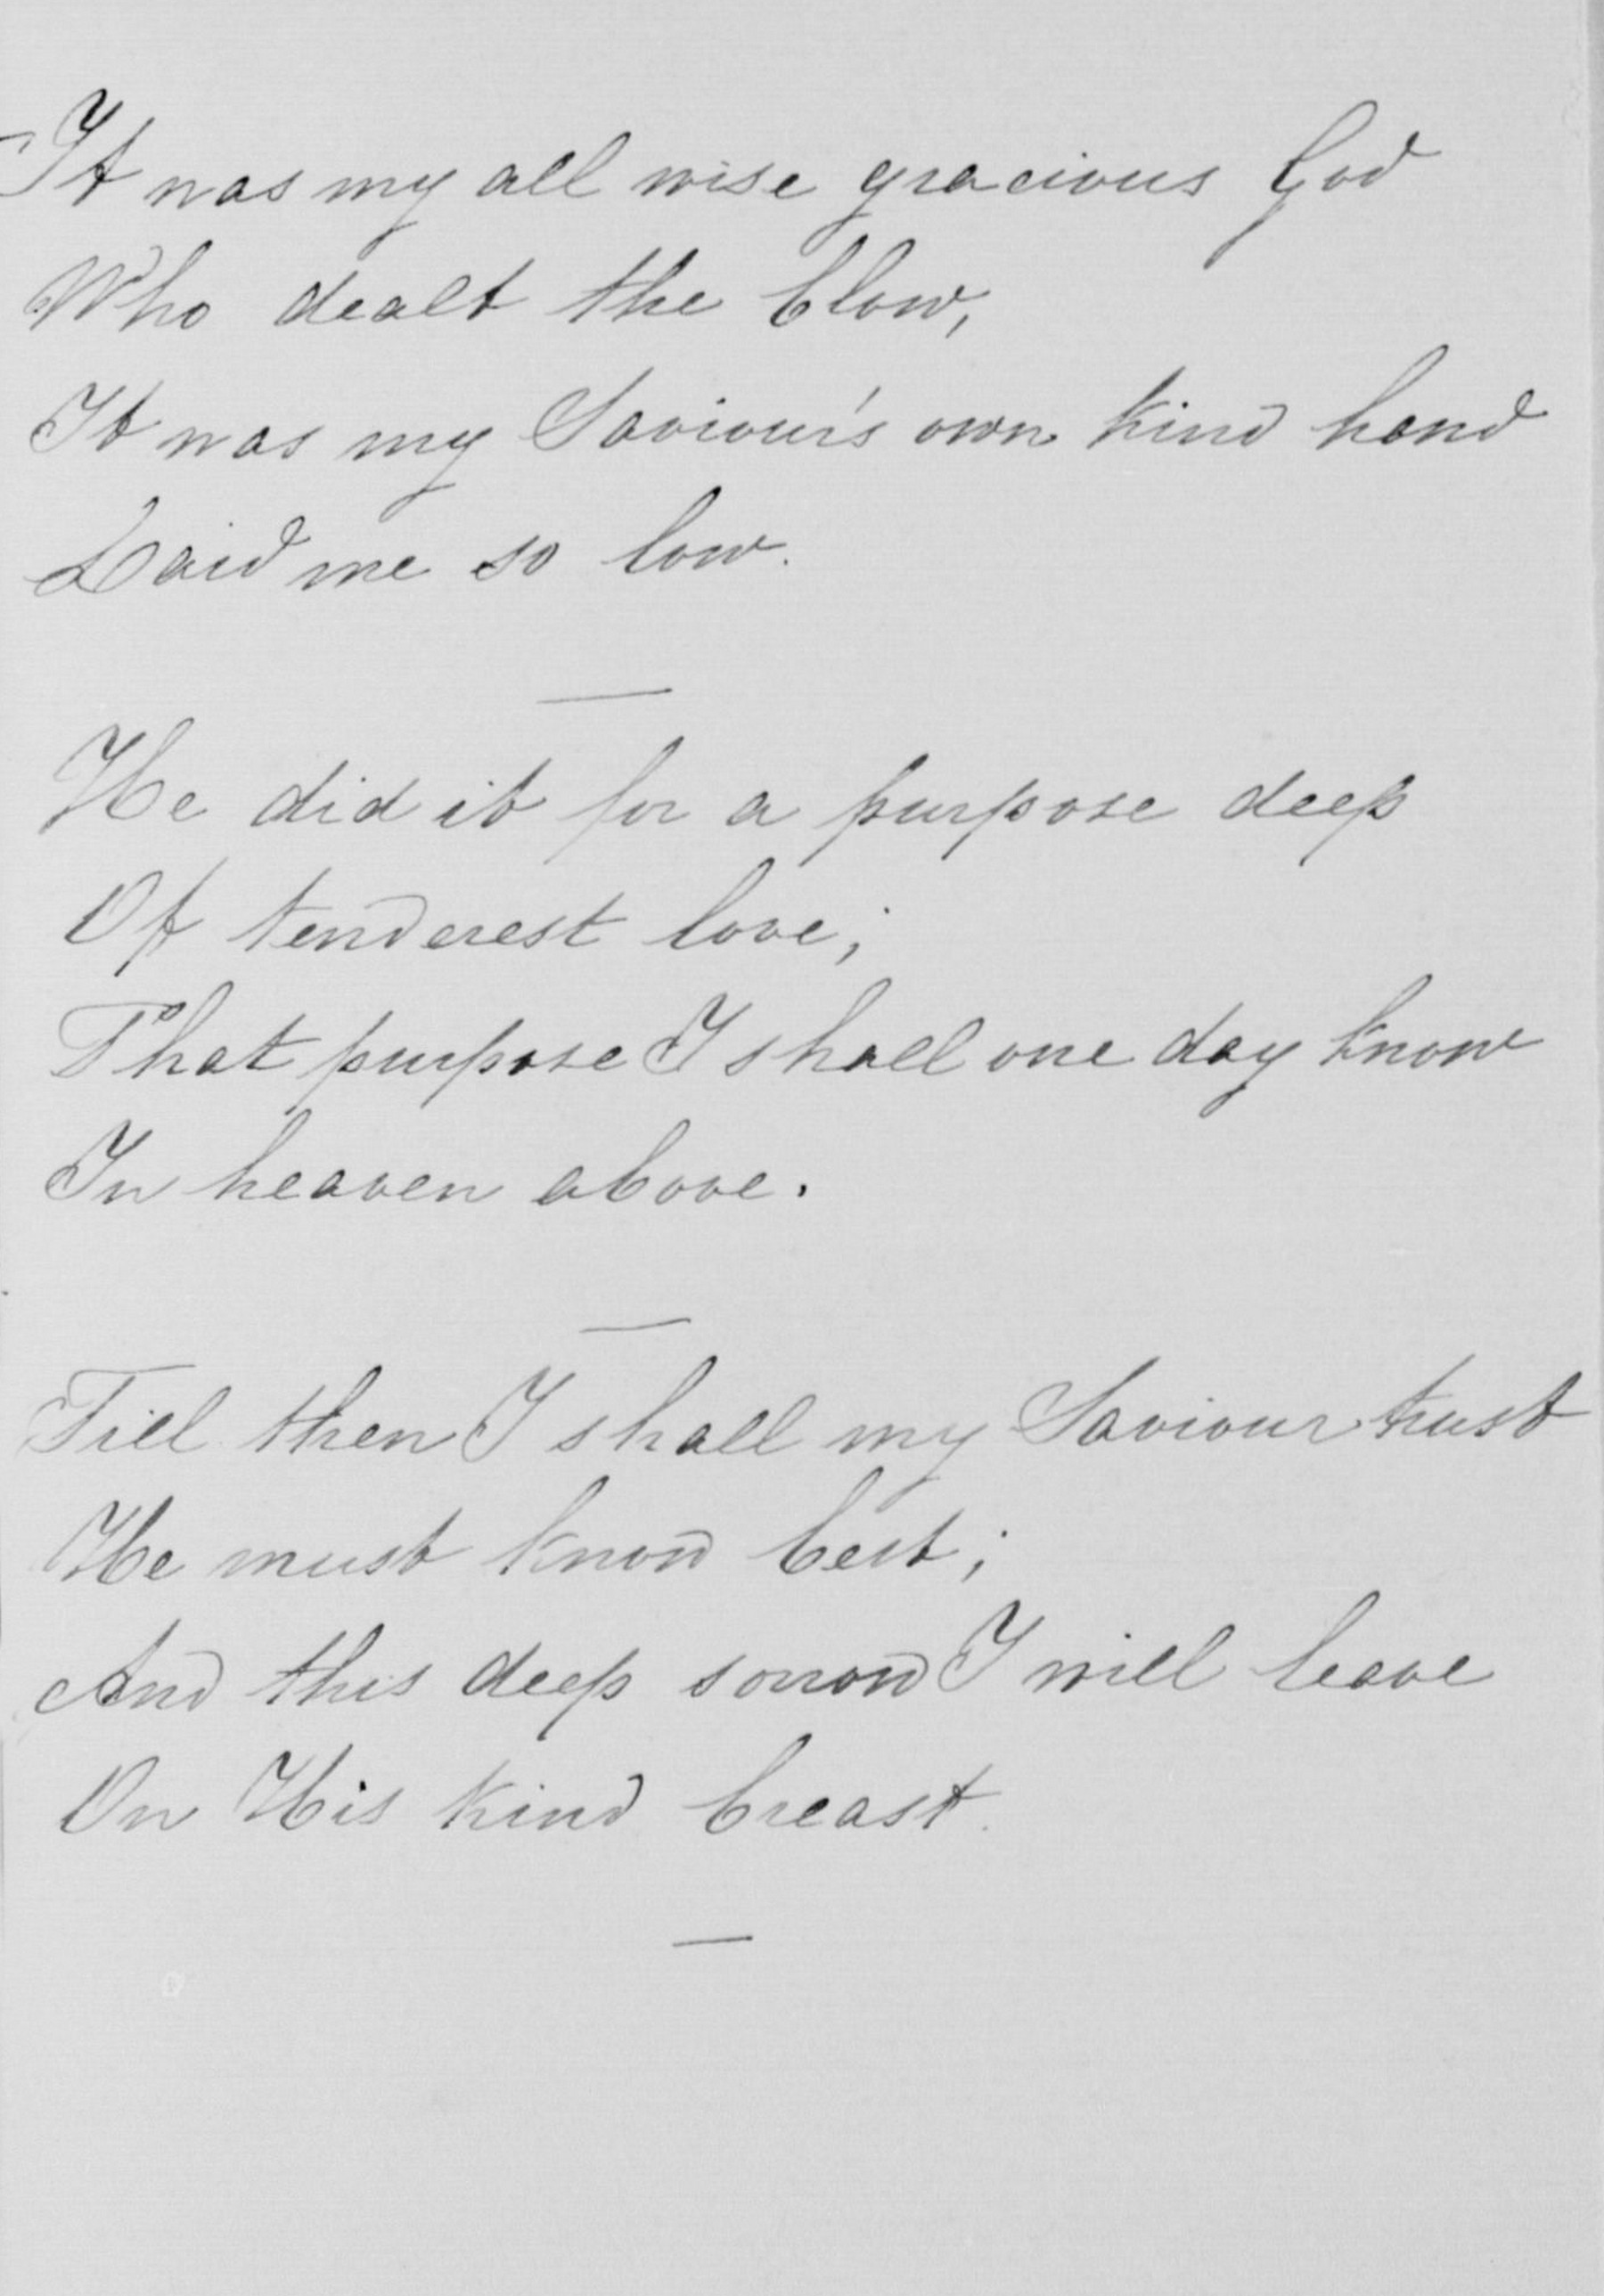 It was my all wise gracious God
Who dealt the blow,
It was my Saviour's own kind hand
Laid me so low.
He did it for a purpose deep
Of tenderest love;
That purpose I shall one day know
In heaven above.
Till then I shall my Saviour trust
He must know best;
And this deep sorrow I will leave
On His kind breast.